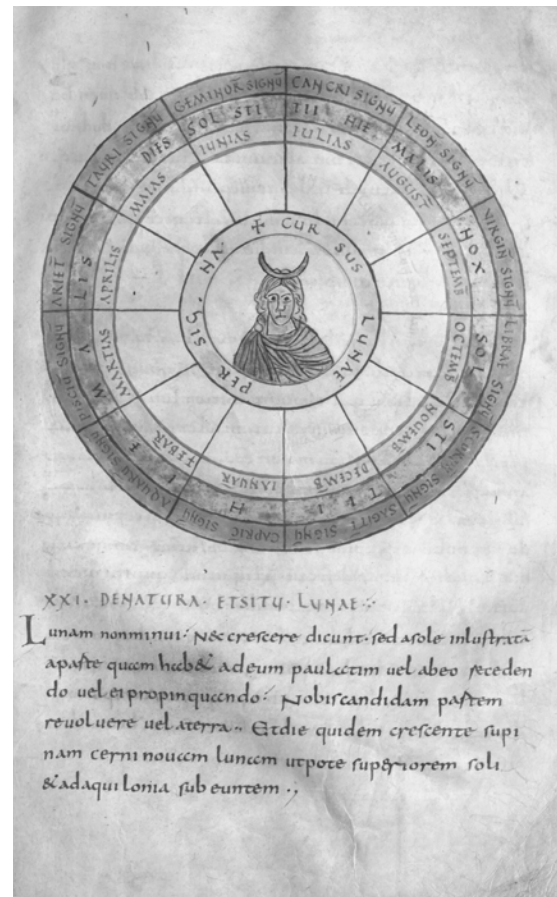 CANCRI SIGNŪ
LEON̄ SIGNŪ
VIRGIN̄ SIGNŪ
LIBRAE SIGNŪ
SAGIT̄ SIGNŪ
CAPRIC̄ SIGNŪ
AQUARII SIGNŪ
PISCIŪ SIGNŪ
ARIET̄ SIGNŪ
TAURI SIGNŪ
GEMINOR̄ SIGNŪ
DIES SOL STI TII HIE MALIS
NOX SOL STI TII H
M A LIS
IUNIAS
IULIAS
AUGUST̄
SEPTEMB̄
OCTEMB̄
NOUEMB̄
DECEMB̄
IANUAR̄
FEBAR̄
MARTIAS
APRILIS
MAIAS
✝ CUR SUS LUNAE PER SIG. NA
XXI · DENATURA · ETSITU · LUNAE :·
Lunam nonminui · Nec crescere dicunt · sed asole inlustratā
aparte quam hab& adeum paulatim vel abeo receden
do vel eipropinquando · Nobiscandidam partem
revoluere vel aterra · Etdie quidem crescente supi
nam cerni nouam lunam utpote superiorem soli
&adaquilonia sub euntem .,